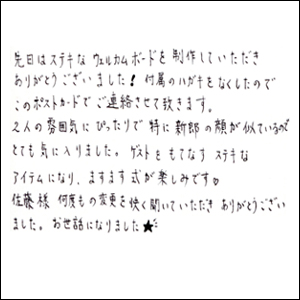 先日はステキな ウェルカムボードを 制作していただき
ありがとうございました! 付属のハガキをなくしたので
このポストカードで ご連絡させて致きます。
2人の雰囲気に ぴったりで 特に 新郎 の 顔が 似ているので
とても 気に入りました。ゲストを もてなす ステキな
アイテムになり、ますます 式が 楽しみです。
佐藤様 何度もの変更を 快く 聞いていただき ありがとうござい
ました。お世話になりました★